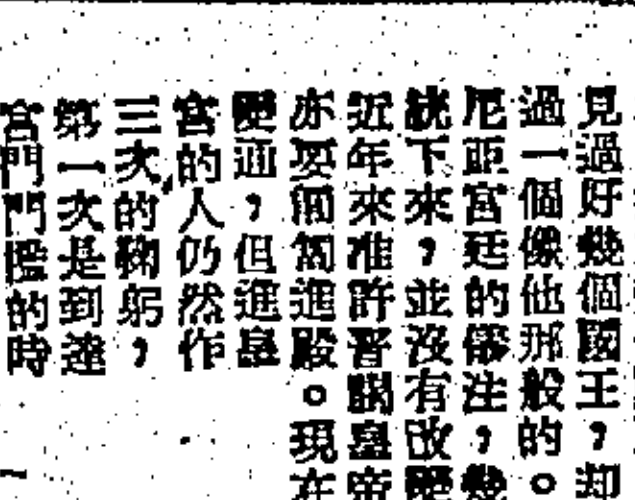 見過好幾個國王，却
過一個像他那般的。
尼亞宮廷的注，幾
統下來，並沒有改變
近年來准許晉謁皇帝
亦要個個進殿。現在
變通，但進皇
宮的人仍然作
三次的鞠躬，
第一次是到達
宮門門檻的時